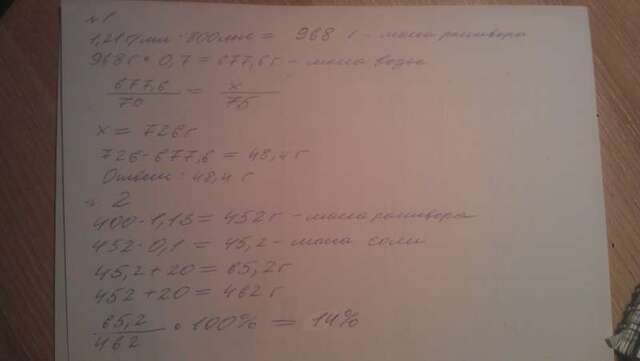 №1
1,21 г/мл · 800 мл = 968 г - масса раствора
968 г · 0,7 = 677,6 г - масса воды
677,6/70 = x/75
x = 726 г
726 - 677,6 = 48,4 г
Ответ: 48,4 г
№2
400 · 1,13 = 452 г - масса раствора
452 · 0,1 = 45,2 - масса соли
45,2 + 20 = 65,2 г
452 + 20 = 462 г
65,2/462 · 100% = 14%